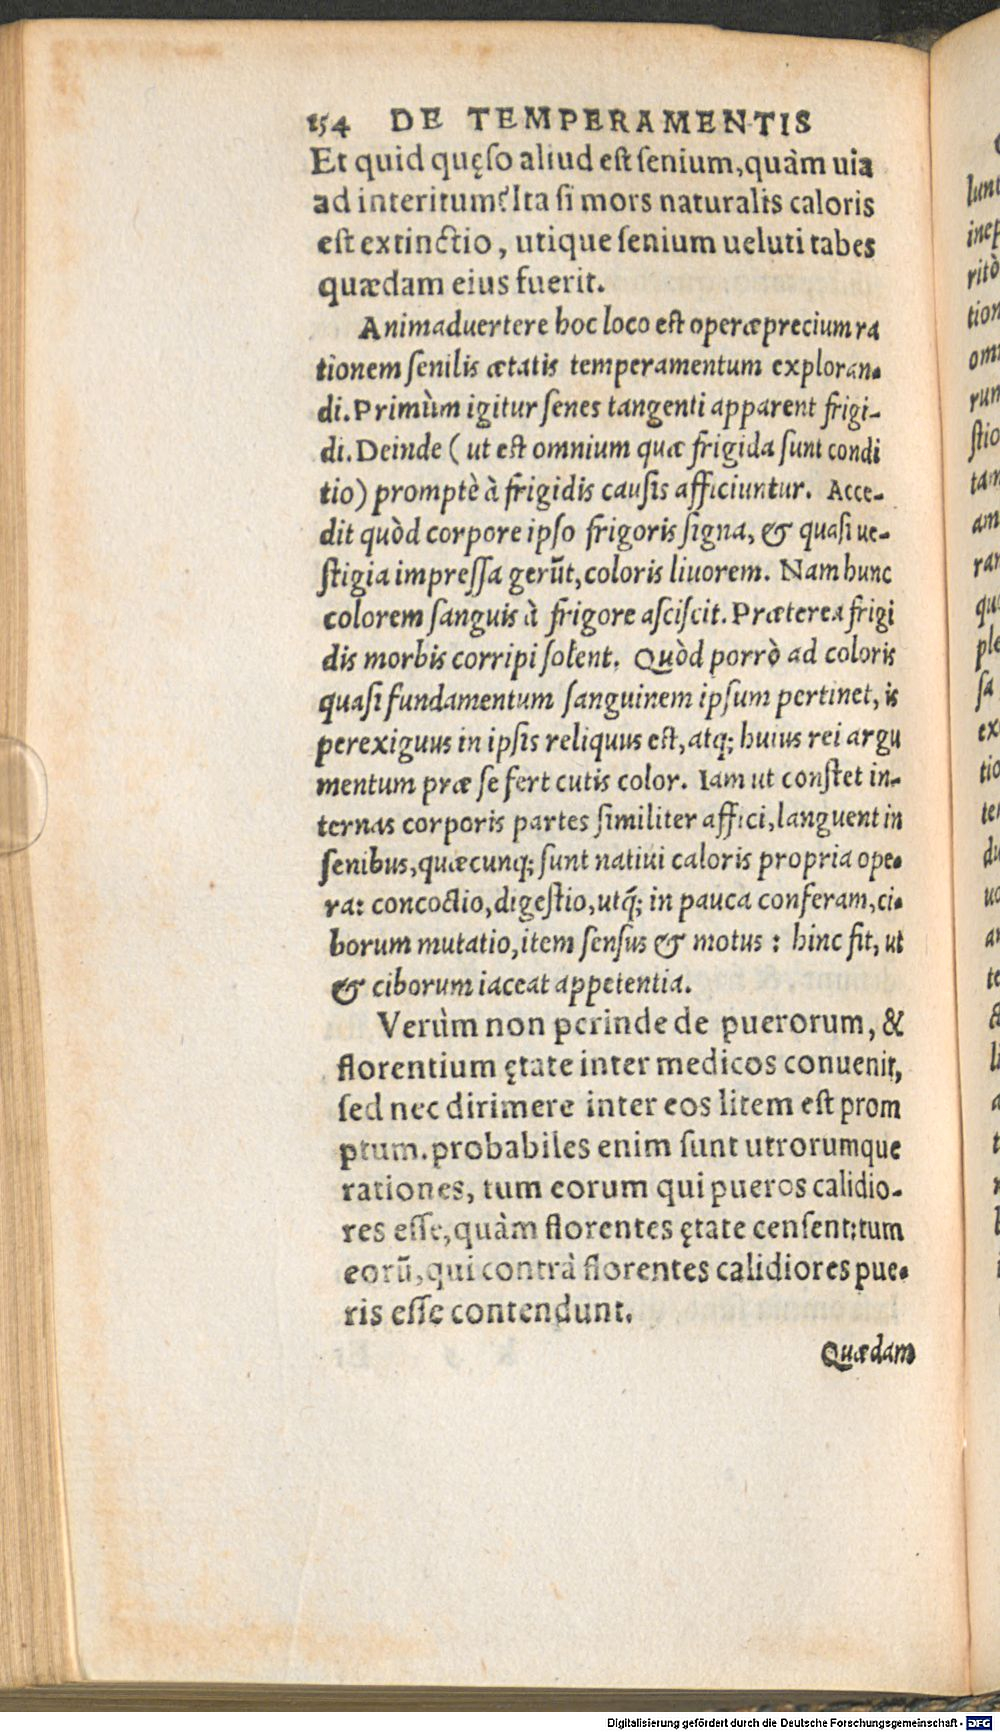 154 DE TEMPERAMENTIS
Et quid quęſo aliud eſt ſenium, quàm uia
ad interitum? Ita ſi mors naturalis caloris
eſt extinctio, utique ſenium ueluti tabes
quædam eius fuerit.
Animaduertere hoc loco eſt operæprecium ra
tionem ſenilis ætatis temperamentum exploran-
di. Primùm igitur ſenes tangenti apparent frigi-
di. Deinde (ut eſt omnium quæ frigida ſunt condi
tio) promptè à frigidis cauſis afficiuntur. Acce-
dit quòd corpore ipſo frigoris ſigna, & quaſi ue-
ſtigia impreſſa gerūt, coloris liuorem. Nam hunc
colorem ſanguis à frigore aſciſcit. Præterea frigi
dis morbis corripi ſolent. Quòd porrò ad coloris
quaſi fundamentum ſanguinem ipſum pertinet, is
perexiguus in ipſis reliquus eſt, atq; huius rei argu
mentum præ ſe fert cutis color. Iam ut conſtet in-
ternas corporis partes ſimiliter affici, languent in
ſenibus, quæcunq; ſunt natiui caloris propria ope-
ra: concoctio, digeſtio, utq́; in pauca conferam, ci-
borum mutatio, item ſenſus & motus: hinc fit, ut
& ciborum iaceat appetentia.
Verùm non perinde de puerorum, &
florentium ętate inter medicos conuenit,
ſed nec dirimere inter eos litem eſt prom
ptum. probabiles enim ſunt utrorumque
rationes, tum eorum qui pueros calidio-
res eſſe, quàm florentes ętate cenſent: tum
eorū, qui contrà florentes calidiores pue-
ris eſſe contendunt.
Quædam
lunt
inep
ritò
tion
omn
run
ſtio
tam
am
ran
qu
ple
ſa
ex
tio
ter
du
uo
an
te
&
li
Digitalisierung gefördert durch die Deutsche Forschungsgemeinschaft - DFG